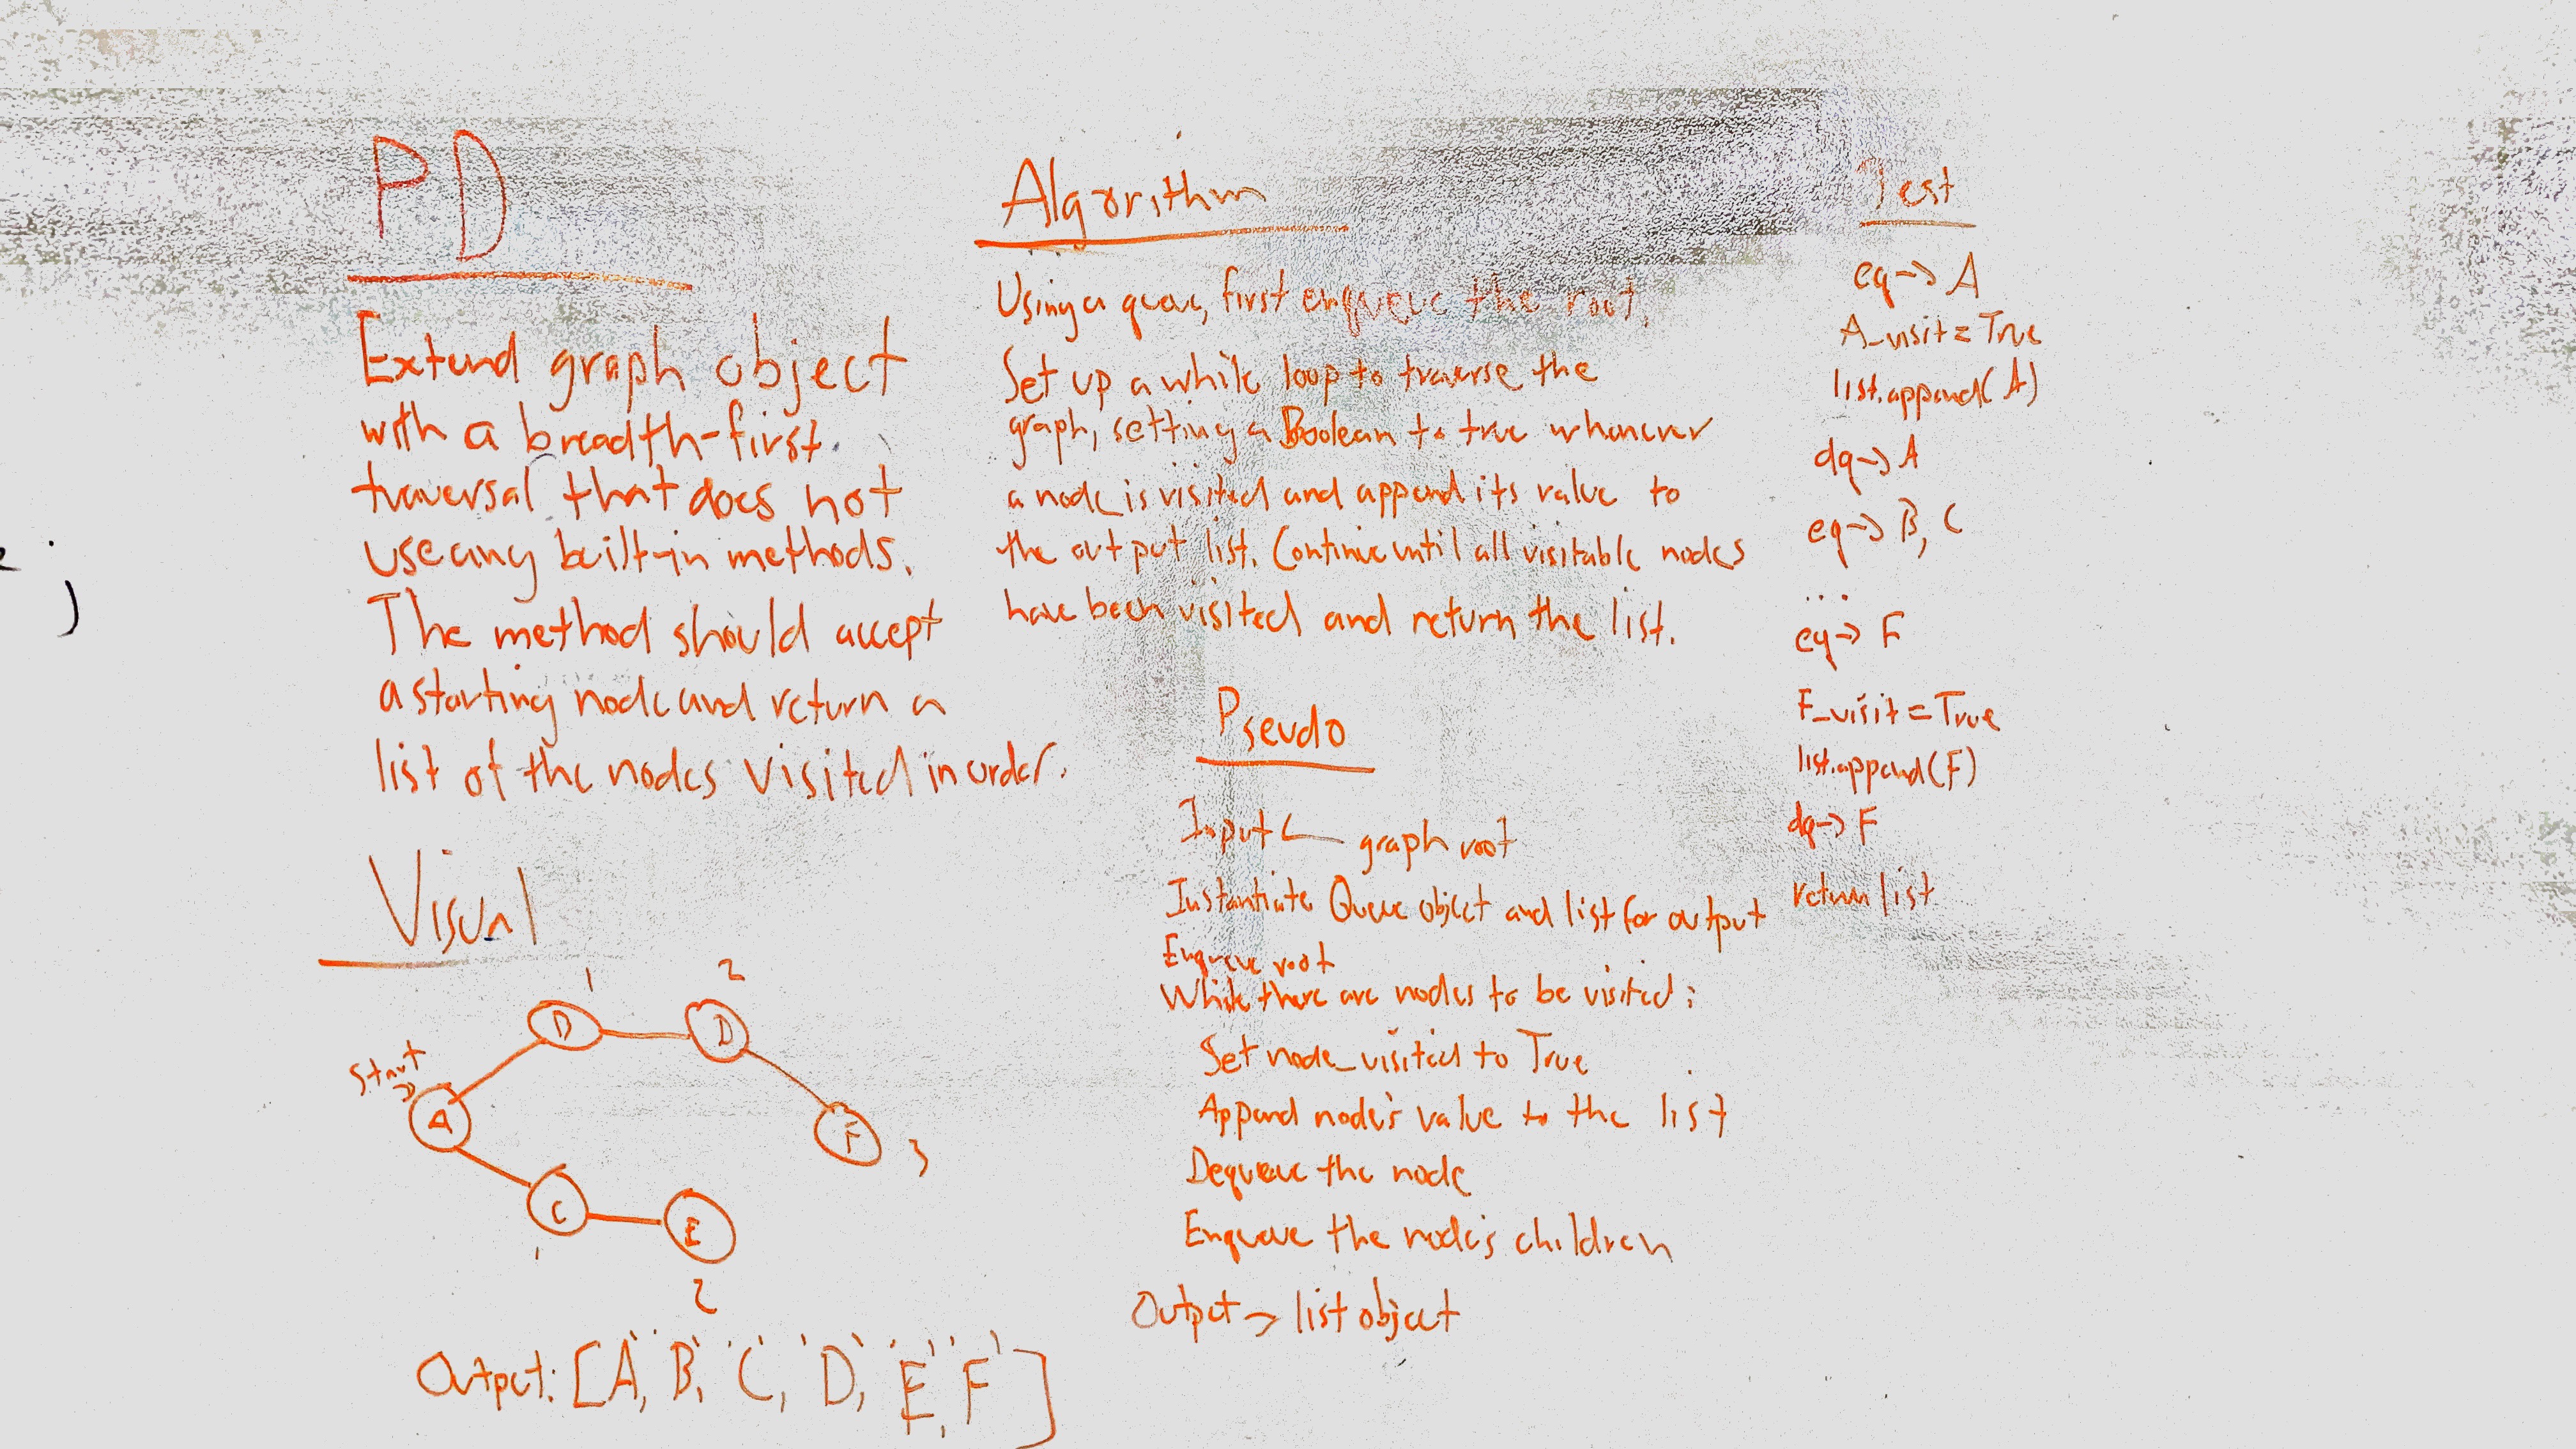 PD
Extend graph object
with a breadth-first
traversal that does not
use any built-in methods.
The method should accept
a starting node and return a
list of the nodes visited in order.
Visual
1
2
Start
B
D
A
F
3
C
E
1
2
Output: ['A', 'B', 'C', 'D', 'E', 'F']
Algorithm
Using a queue, first enqueue the root.
Set up a while loop to traverse the
graph, setting a Boolean to true whenever
a node is visited and append its value to
the output list. Continue until all visitable nodes
have been visited and return the list.
Pseudo
Input ← graph root
Instantiate Queue object and list for output
Enqueue root
While there are nodes to be visited:
Set node_visited to True
Append node's value to the list
Dequeue the node
Enqueue the node's children
Output → list object
Test
eq → A
A_visit = True
list.append(A)
dq → A
eq → B, C
...
eq → F
F_visit = True
list.append(F)
dq → F
return list